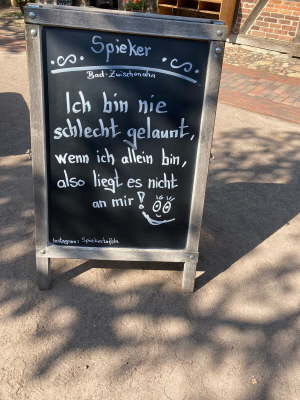 Spieker
Bad-Zwischenahn
Ich bin nie
schlecht gelaunt,
wenn ich allein bin,
also liegt es nicht
an mir!
Instagram: Spiekertafeln